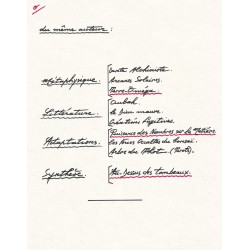 du même auteur
Métaphysique.
Invita Alchimiste.
Arcanes Solaires.
Terre-Oméga.
Littérature.
Aubal.
le bien mauve.
Créations Fugitives.
Adaptations.
Puissance des Nombres sur la Matière.
Les Voies Occultes du Bonsaï.
Arbre du (Tarots).
Synthèse.
Au-Dessus des tombeaux.